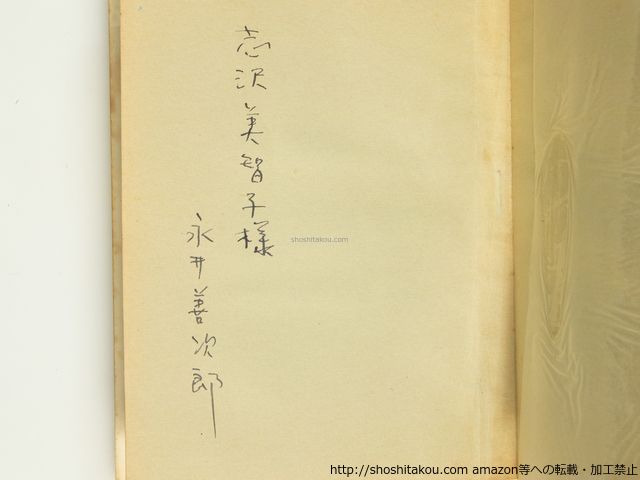 志沢美智子様
永井善次郎
shoshitakou.com
http://shoshitakou.com amazon等への転載・加工禁止